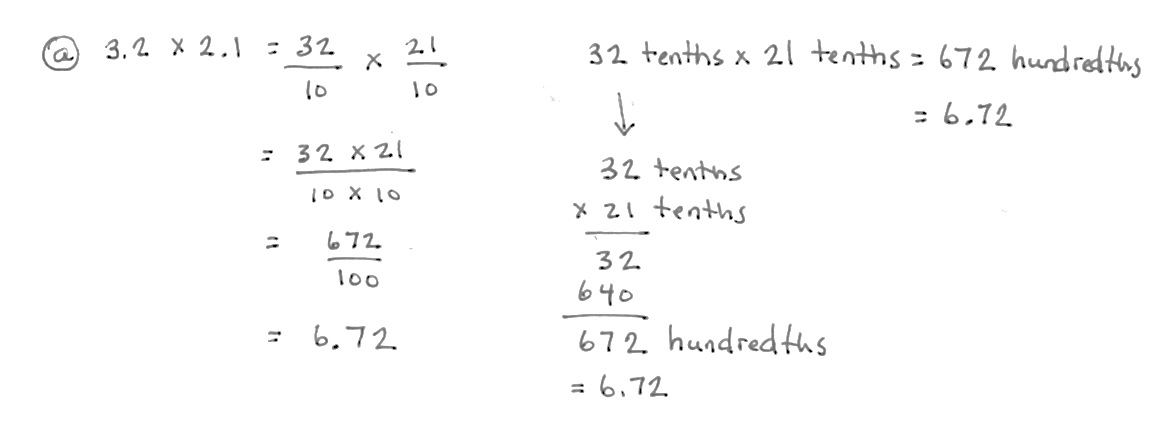 ⓐ 3.2 × 2.1 = 32/10 × 21/10
= 32 × 21 / 10 × 10
= 672/100
= 6.72
32 tenths × 21 tenths = 672 hundredths
= 6.72
↓
32 tenths
× 21 tenths
32
640
672 hundredths
= 6.72